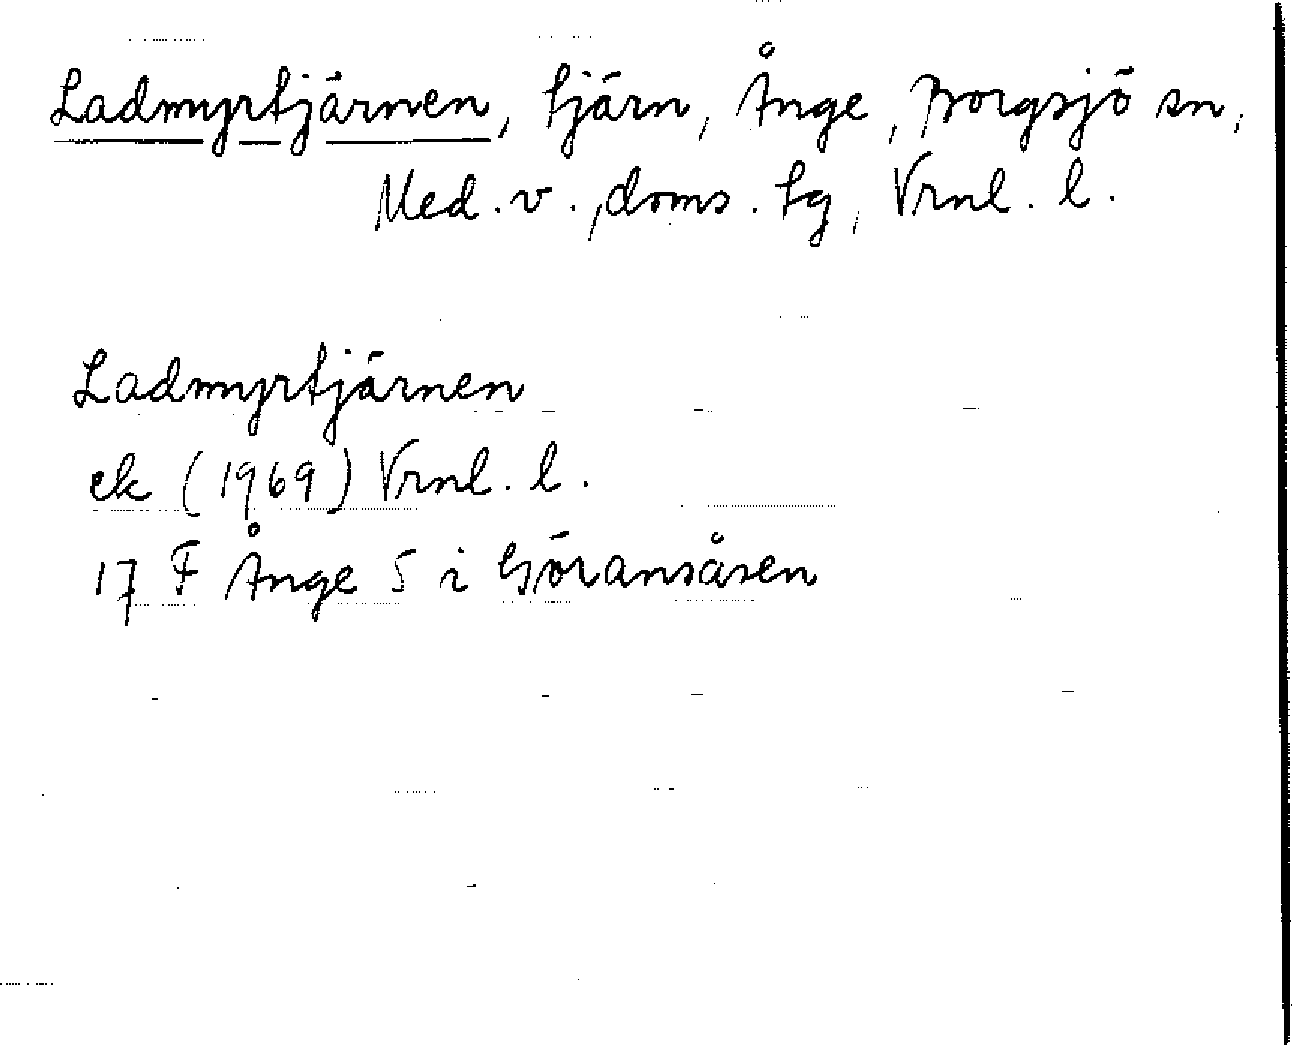 Ladmyrtjärnen, tjärn, Ånge, Borgsjö sn,
Med. v., doms. tg, Vrnl. l.
Ladmyrtjärnen
ek (1969) Vrnl. l.
17 F Ånge S i Göransåsen